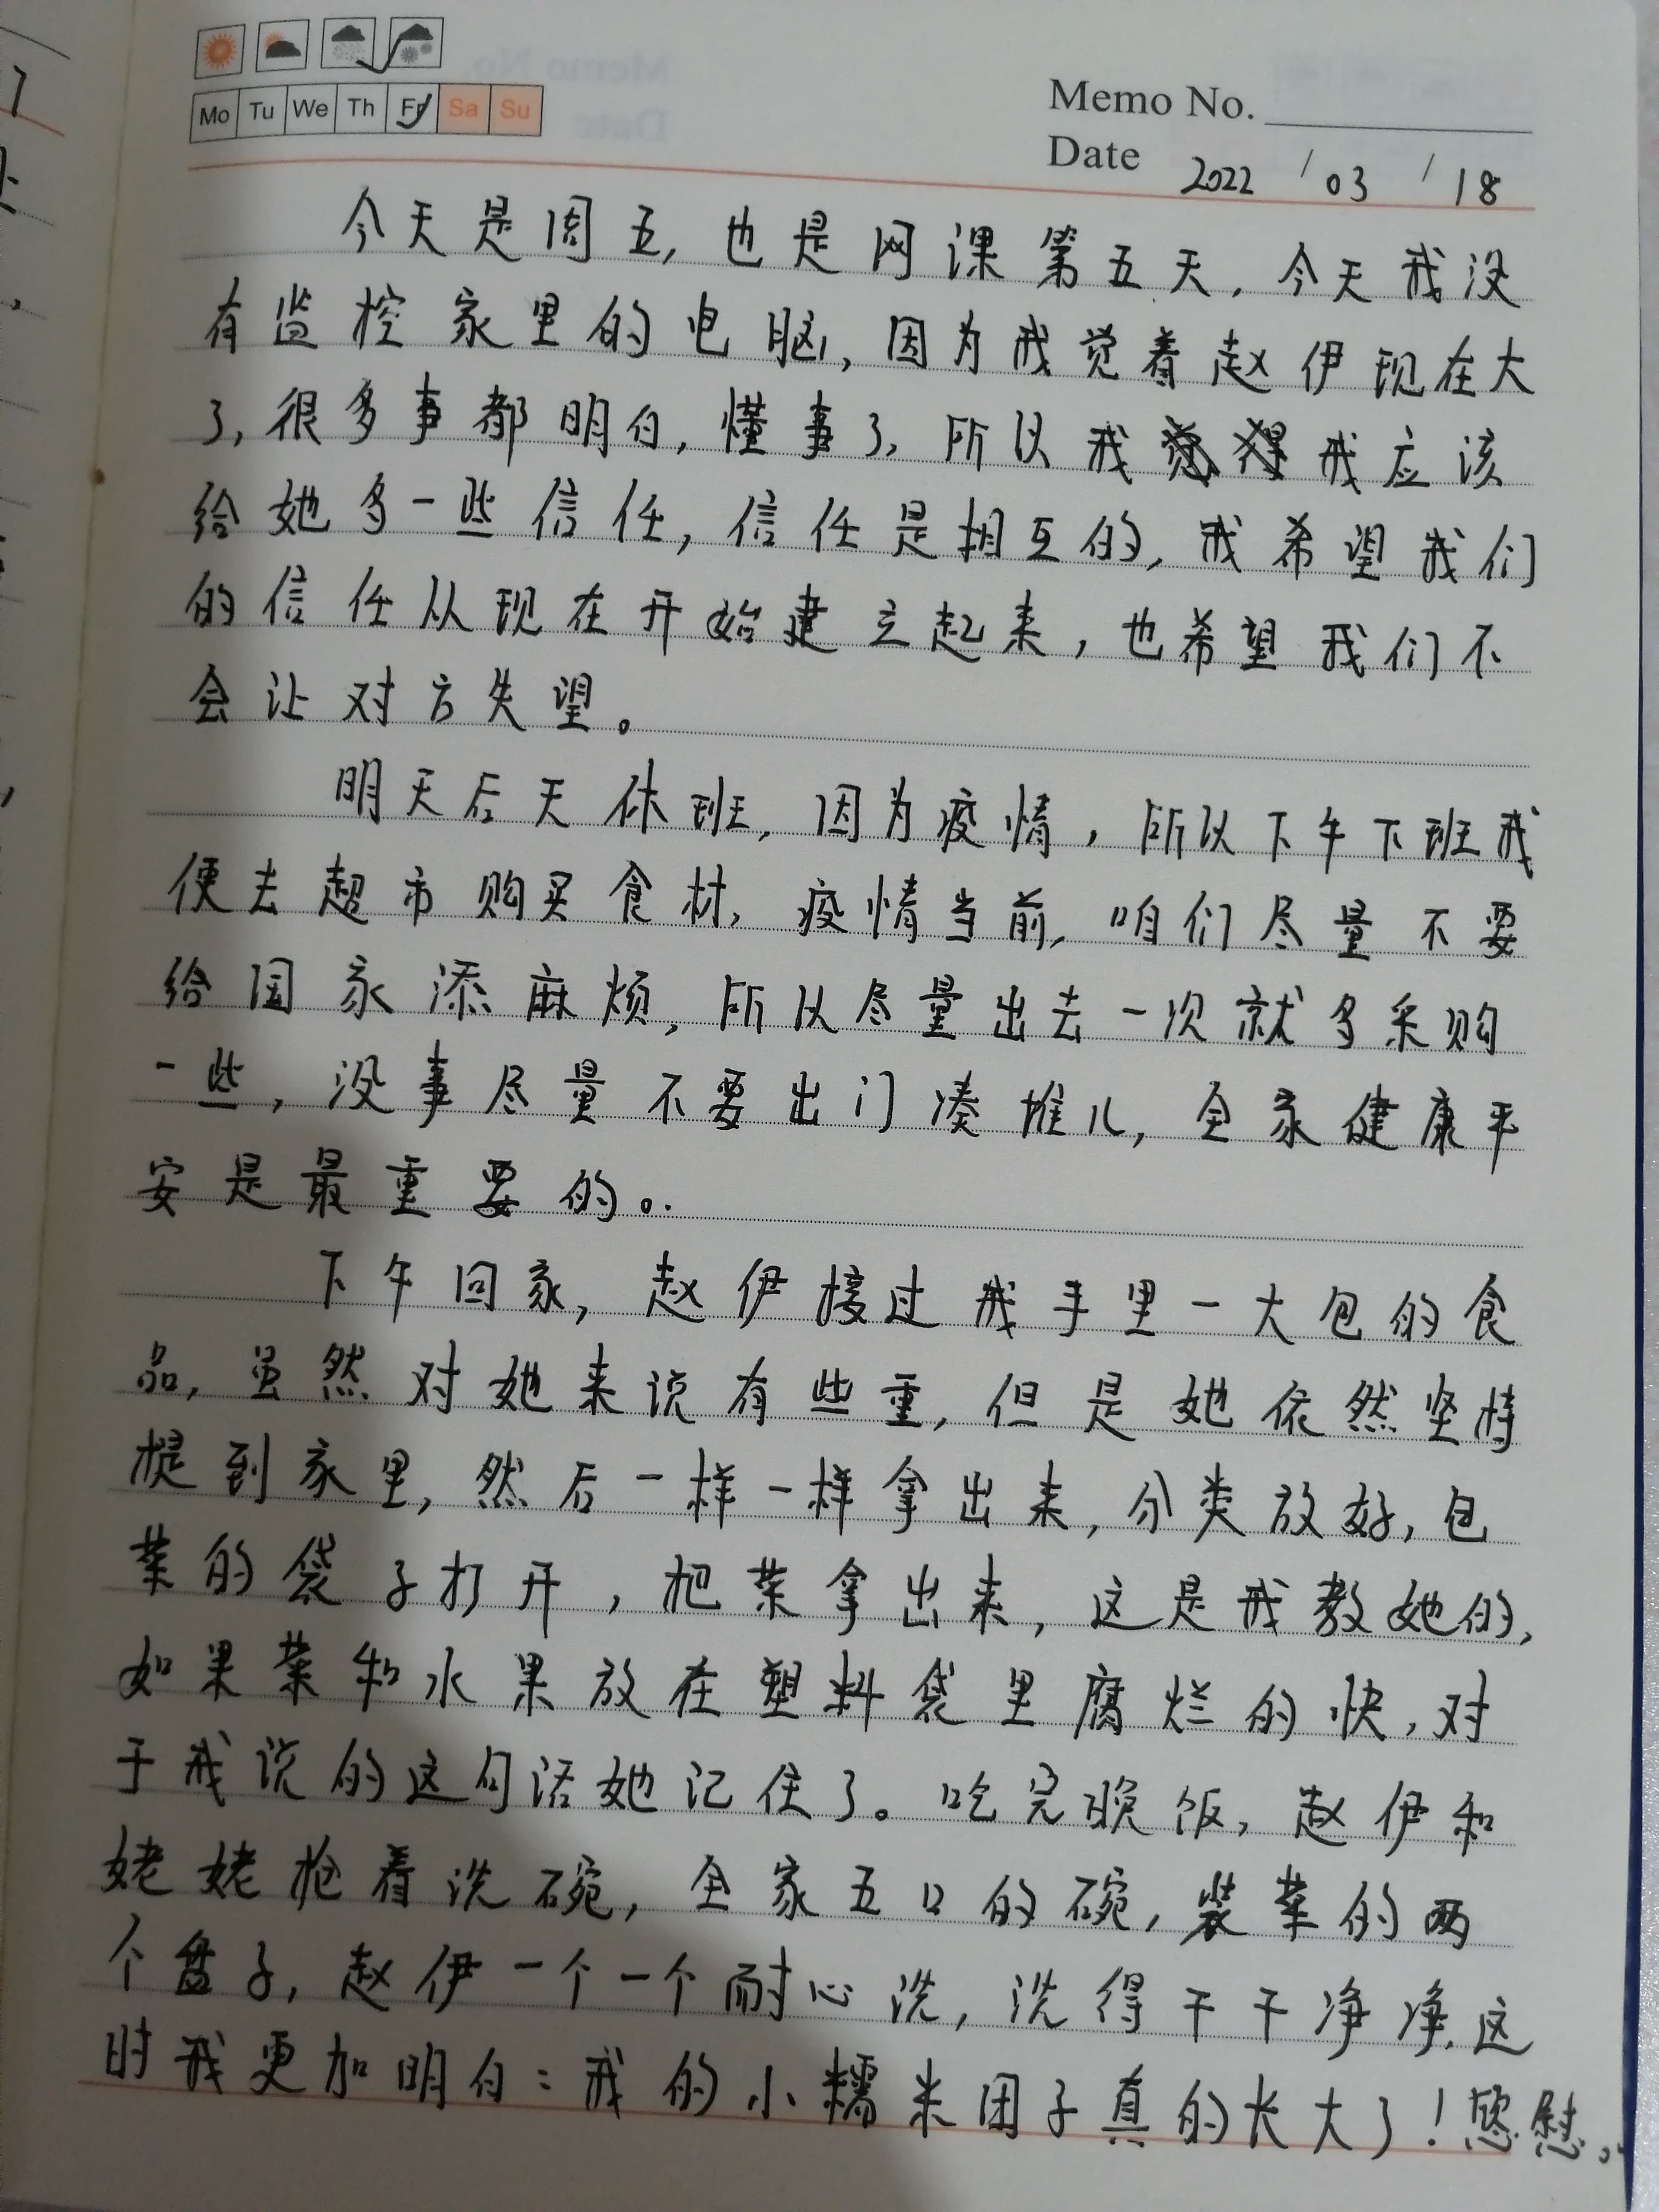 Mo Tu We Th Fr Sa Su
Memo No.
Date 2022 / 03 / 18
今天是周五，也是网课第五天，今天我没
有监控家里的电脑，因为我觉着赵伊现在大
了，很多事都明白，懂事了，所以我觉得我应该
给她多一些信任，信任是相互的，我希望我们
的信任从现在开始建立起来，也希望我们不
会让对方失望。
明天后天休班，因为疫情，所以下午下班我
便去超市购买食材，疫情当前，咱们尽量不要
给国家添麻烦，所以尽量出去一次就多采购
一些，没事尽量不要出门凑堆儿，全家健康平
安是最重要的。
下午回家，赵伊接过我手里一大包的食
品，虽然对她来说有些重，但是她依然坚持
提到家里，然后一样一样拿出来，分类放好，包
菜的袋子打开，把菜拿出来，这是我教她的，
如果菜和水果放在塑料袋里腐烂的快，对
于我说的这句话她记住了。吃完晚饭，赵伊和
姥姥抢着洗碗，全家五口的碗，装菜的两
个盘子，赵伊一个一个耐心洗，洗得干干净净，这
时我更加明白：我的小糯米团子真的长大了！慾慰。